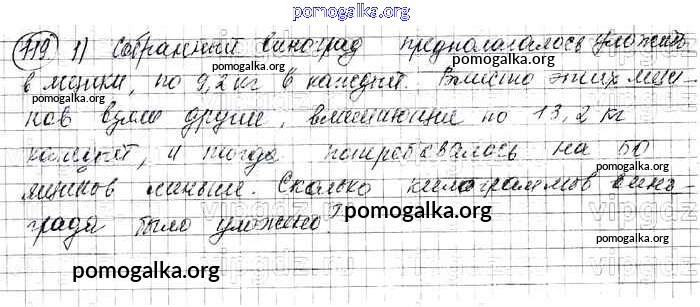 pomogalka.org
119 1) Собранный виноград предполагалось уложить
pomogalka.org
в ящики, по 9,2 кг в каждый. Вместо этих ящи
ков взяли другие, вмещающие по 13,2 кг
каждый, и тогда потребовалось на 50
pomogalka.org
ящиков меньше. Сколько килограммов вино
pomogalka.org
града было уложено?
pomogalka.org
pomogalka.org